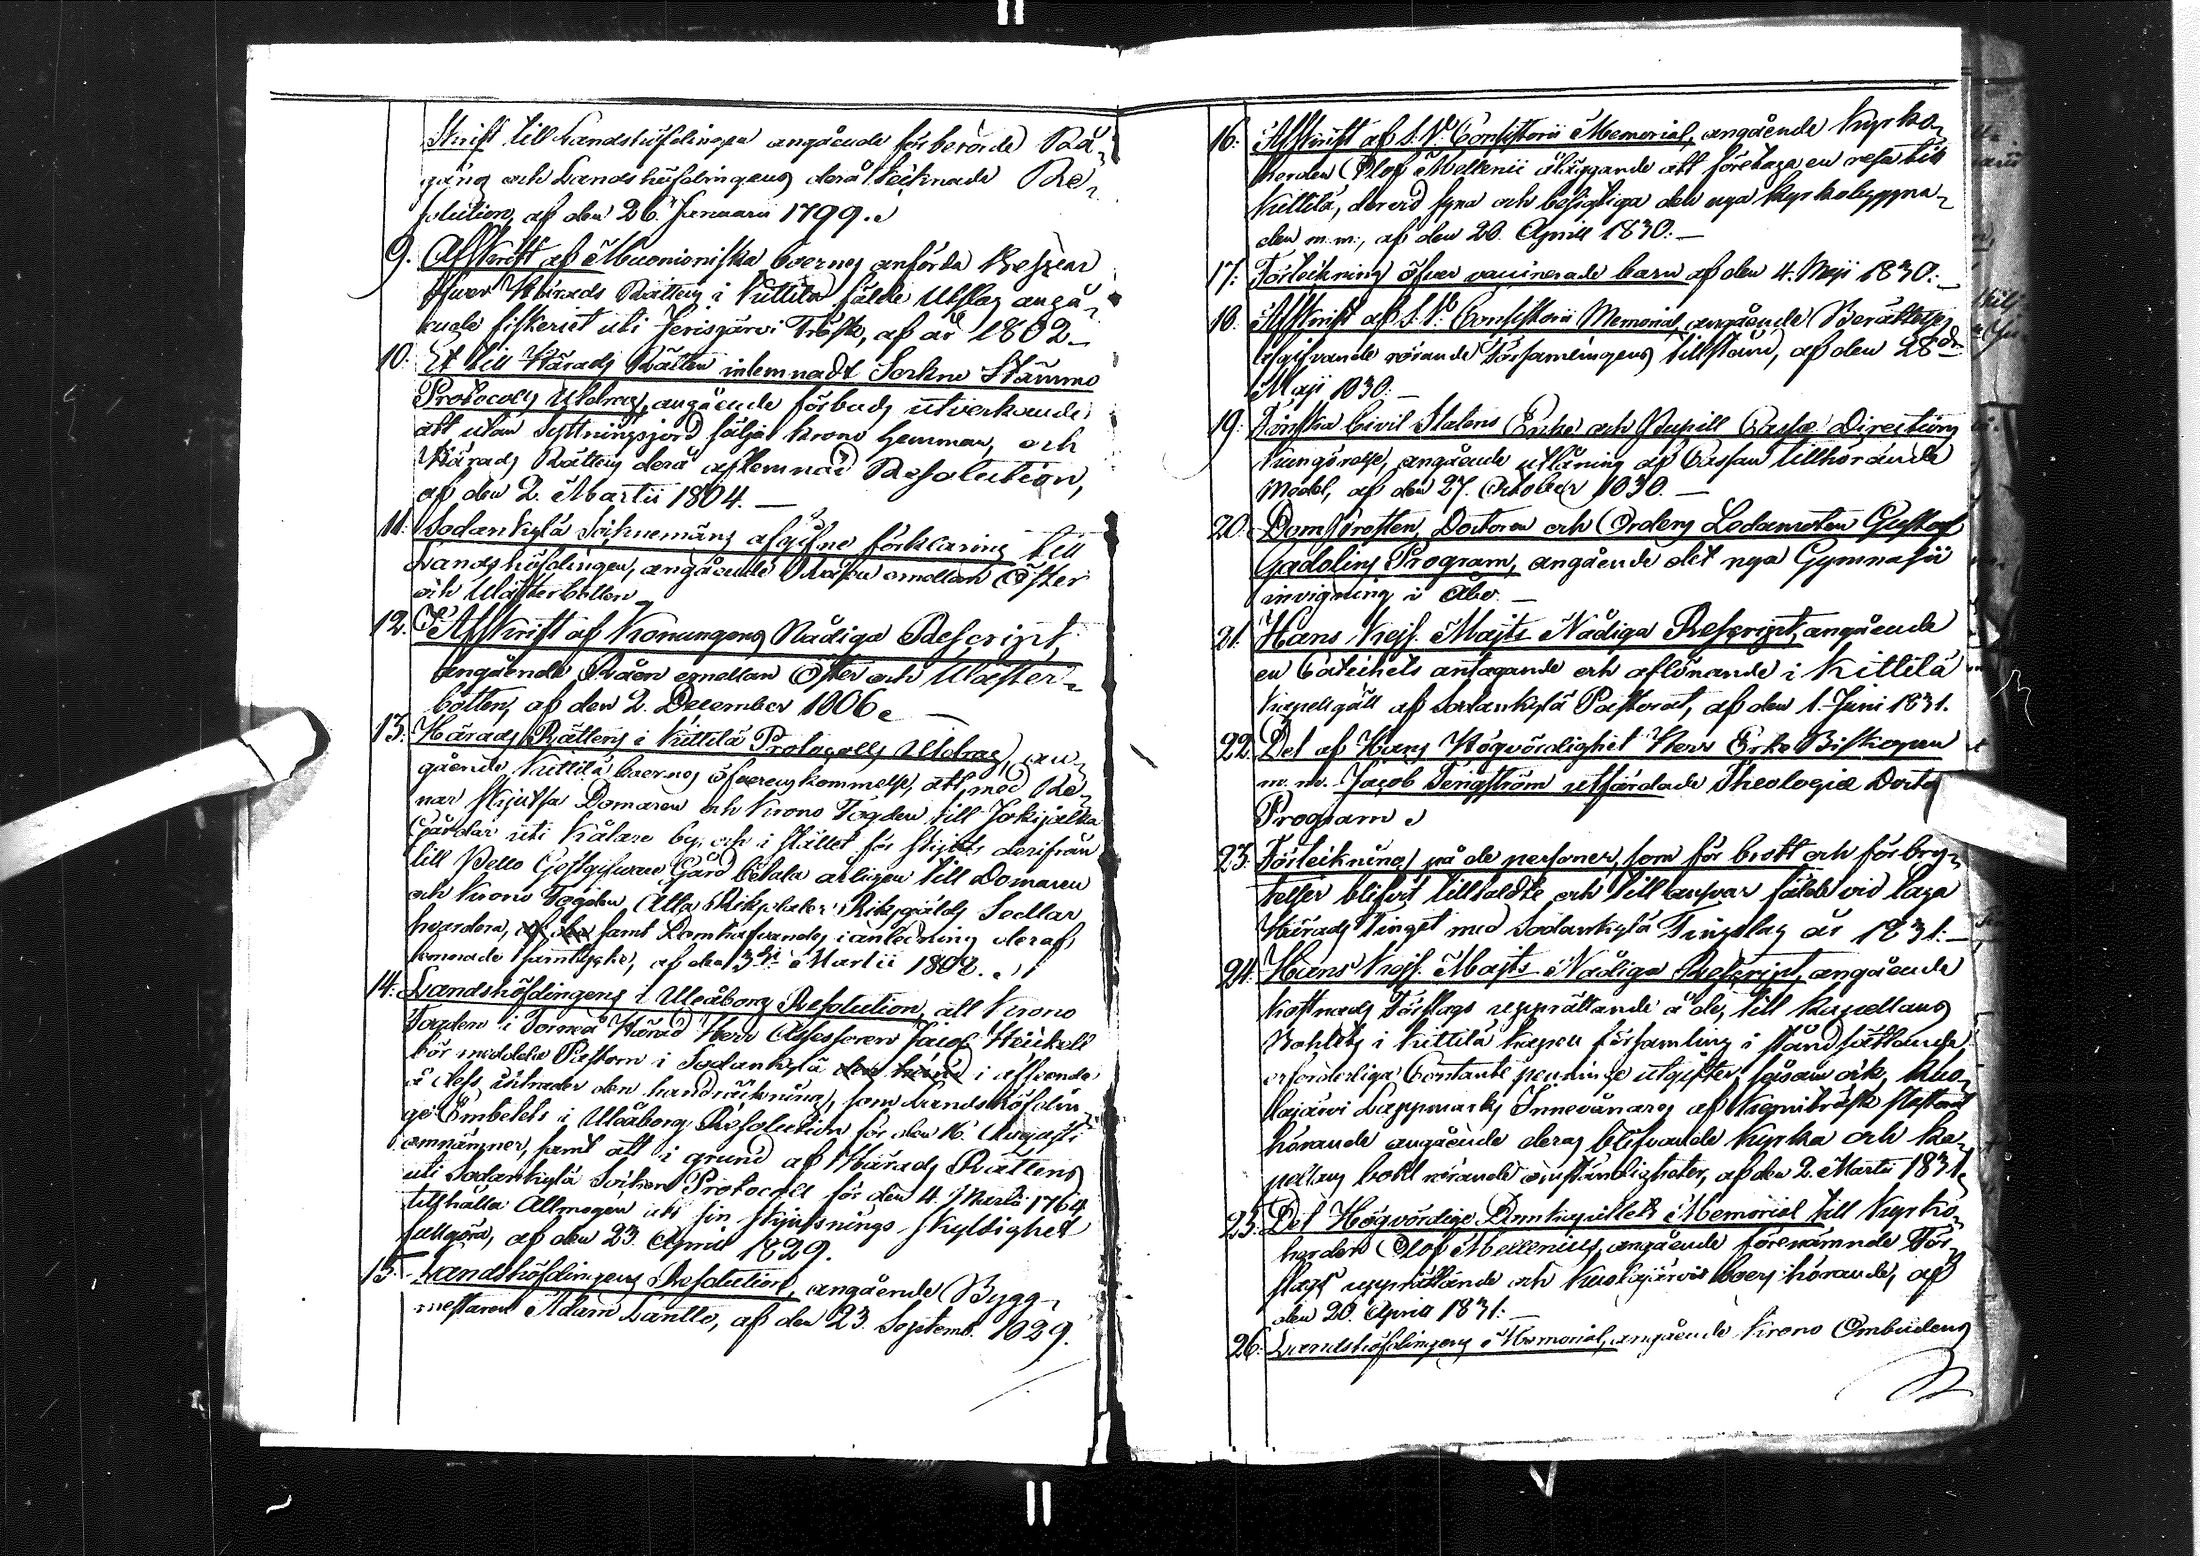 Skrift till Landshöfdingen angående förberörde Rå-
gång och Landshöfdingens derå tecknade Re-
solution, af den 26. Januarii 1799.
9. Afskrift af Muonioniska boernes anförda Besvär
öfver Härads Rättens i Kittilä fälde Utslag angå-
ende fiskeriet uti Jerisjärvi Träsk, af år 1802
10. Et till Härads Rätten inlemnadt Sockne Stämmo
Protocolls Utdrag, angående förbuds utverkande
att utan Syttningsjord sälja Krono hemman, och
Härads Rättens derå aflemnade Resolution,
af den 2. Martii 1804.
11. Sodankylä Socknemäns afgifne förklaring till
Landshöfdingen, angående Råen emellan Öster
och Wästerbotten
12. Afskrift af Konungens Nådiga Rescript,
angående Råen emellan Öster och Wäster-
botten, af den 2. December 1806.
13. Härads Rättens i Kittilä Protocolls Utdrag, an-
gående Kittilä boernes öfverenskommelse, att med Re-
nar skjutsa Domaren och Krono Fogden till Jokijalka
Gårdar uti Kålare by, och i stället för skjuts derifrån
till Pello Gästgifvare Gård betala årligen till Domaren
och Krono Fogden Åtta Riksdaler Riksgälds Sedlar
hvardera, samt Domhafvandes i anledning deraf
lemnade samtycke, af den 3 Martii 1808.
14. Landshöfdingens i Uleåborg Resolution, att Krono
Fogden i Torneå Härad Herr Assessoren Jacob Heickell
bör meddela Pastorn i Sodankylä i afseende
å dess den handräckning, som Landshöfdin-
ge Embetets i Uleåborg Resolution för den 16. Augusti
omnämner, samt att i grund af Härads Rättens
uti Sodankylä Socken Protocoll för den 4. Martii 1764
tillhålla Allmogen uti sin skjutsnings skyldighet
fullgöra, af den 23. April 1829.
15. Landshöfdingens Resolution, angående Bygg-
mästaren Adam Lantto, af den 23. Septemb. 1829.
16. Afskrift af S. V. Consistorii Memorial, angående Kyrko-
herden Olof Mellenii åläggande att företaga en resa till
Kittilä, der vid syna och besigtiga den nya Kyrkobyggna-
den m.m., af den 20. April 1830.
17. Förteckning öfver vaccinerade barn af den 4. Maji 1830.
18. Afskrift af S. V. Consistorii Memorial, angående Berättelses
afgifvande rörande Församlingens tillstånd, af den 28de
Maji 1830.
19. Finska Civil Statens Enke och Pupill Cassæ Directions
Kungörelse, angående utlåning af Cassan tillhörande
Medel, af den 27. October 1830.
20. Domprosten, Doctoren och Ordens Ledamoten Gustaf
Gadolins Program, angående det nya Gymnasii
invigning i Åbo.
21. Hans Kejs. Majts Nådiga Rescript, angående
en Catechets antagande och aflönande i Kittilä
Kapellgäll af Sodankylä Pastorat, af den 1. Juni 1831.
22. Det af Hans Högvördighet Herr Erke Biskopen
m.m. Jacob Tengström utfärdade Theologiæ Doctors
Program
23. Förteckning på de personer, som för brott och förbry-
telser blifvit tilltalde och till ansvar fälde vid laga
Härads Tinget med Sodankylä Tingslag år 1831.
24. Hans Kejs. Majts Nådiga Rescript, angående
Kostnads Förslags upprättande å de, till Kapellans
Bohlets i Kittilä Kapell församling i stånd sättande
erforderliga Contante penninge utgifter, såsom ock, Kuo-
lajärvi Lappmarks Innevånares af Kemiträsk Pastorat
hörande angående deras blifvande Kyrka och Ka-
pellans bohl rörande omständigheter, af den 2. Martii 1831.
25. Det Högvördige Domkapitlets Memorial till Kyrko-
herden Olof Mellenius, angående förenämnde För-
slags upprättande och Kuolajärvis boers hörande, af
den 20. April 1831.
26. Landshöfdingens Memorial, angående Krono Ombudens